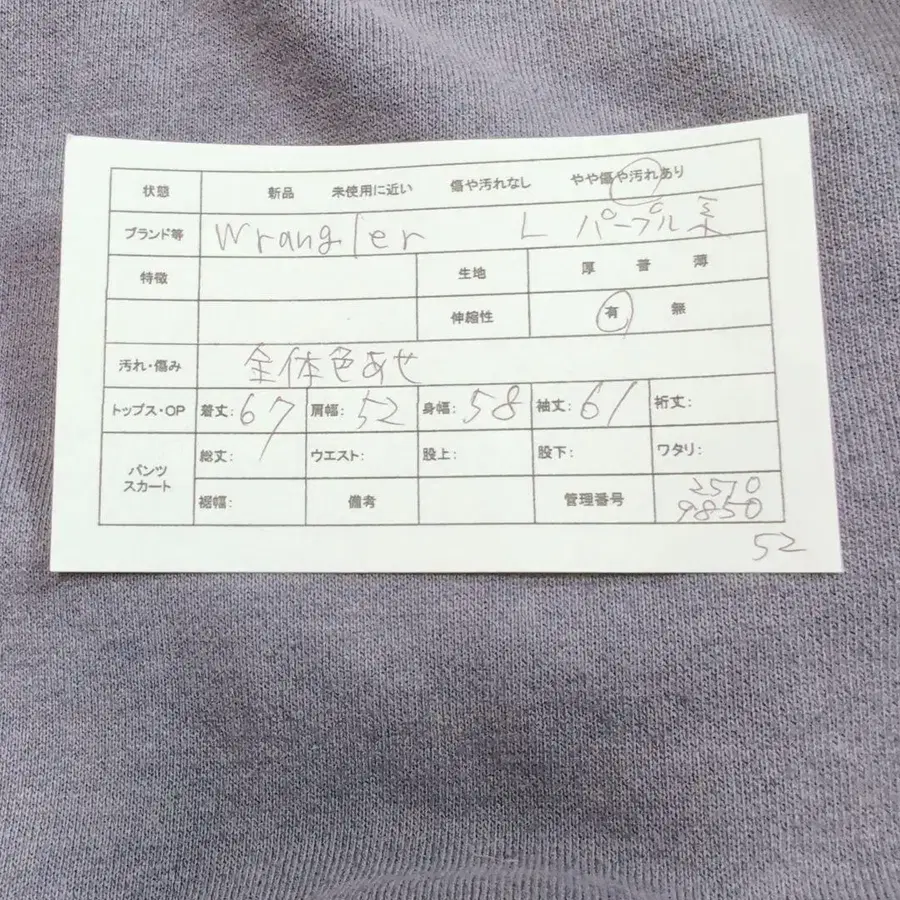 状態 新品 未使用に近い 傷や汚れなし やや傷や汚れあり
ブランド等 Wrangler L パープル系
特徴 生地 厚 普 薄
伸縮性 有 無
汚れ・傷み 全体色あせ
トップス・OP 着丈: 67 肩幅: 52 身幅: 58 袖丈: 61 裄丈:
パンツ スカート 総丈: ウエスト: 股上: 股下: ワタリ:
裾幅: 備考 管理番号 2510
9850
52